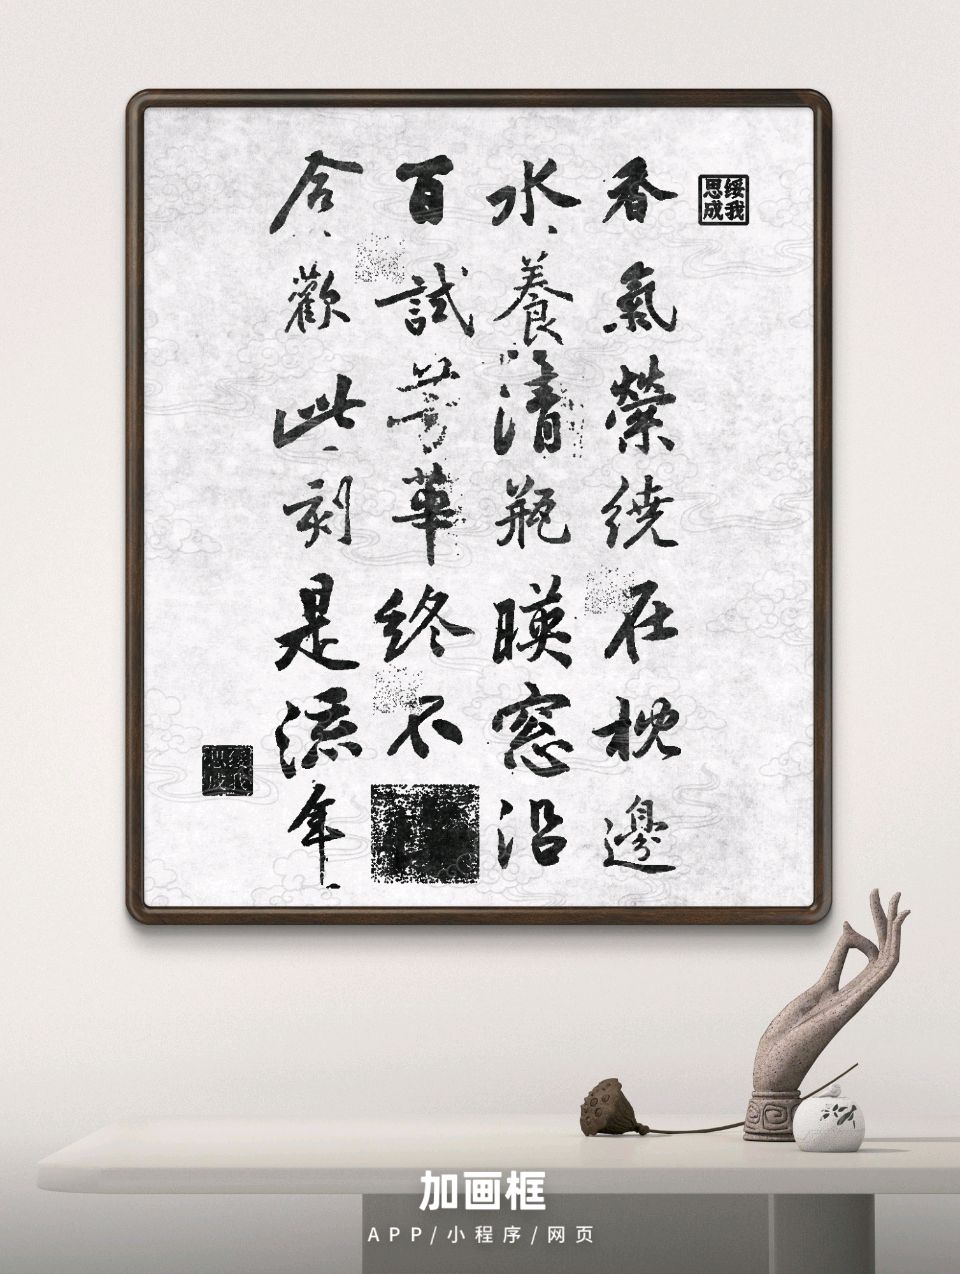 綏我
思成
香氣縈繞在枕邊
水養清瓶暎窓沿
百試芳華終不
含歡此刻是流年
綏我
思成
加画框
APP/小程序/网页